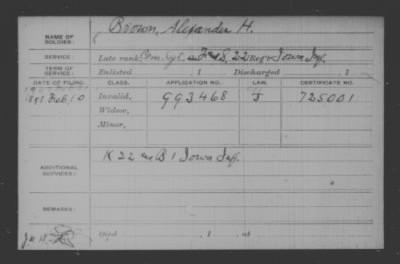 NAME OF SOLDIER: Brown, Alexander H.
SERVICE: Late rank Com. Sgt. F and S, 22 Reg't Iowa Inf.
TERM OF SERVICE: Enlisted , 1 Discharged , 1
DATE OF FILING. CLASS. APPLICATION NO. LAW. CERTIFICATE NO.
1891 Feb. 10 Invalid, 993468 J 725001
Widow,
Minor,
ADDITIONAL SERVICES: K 22 and B 1 Iowa Inf.
REMARKS:
Died , 1 , at